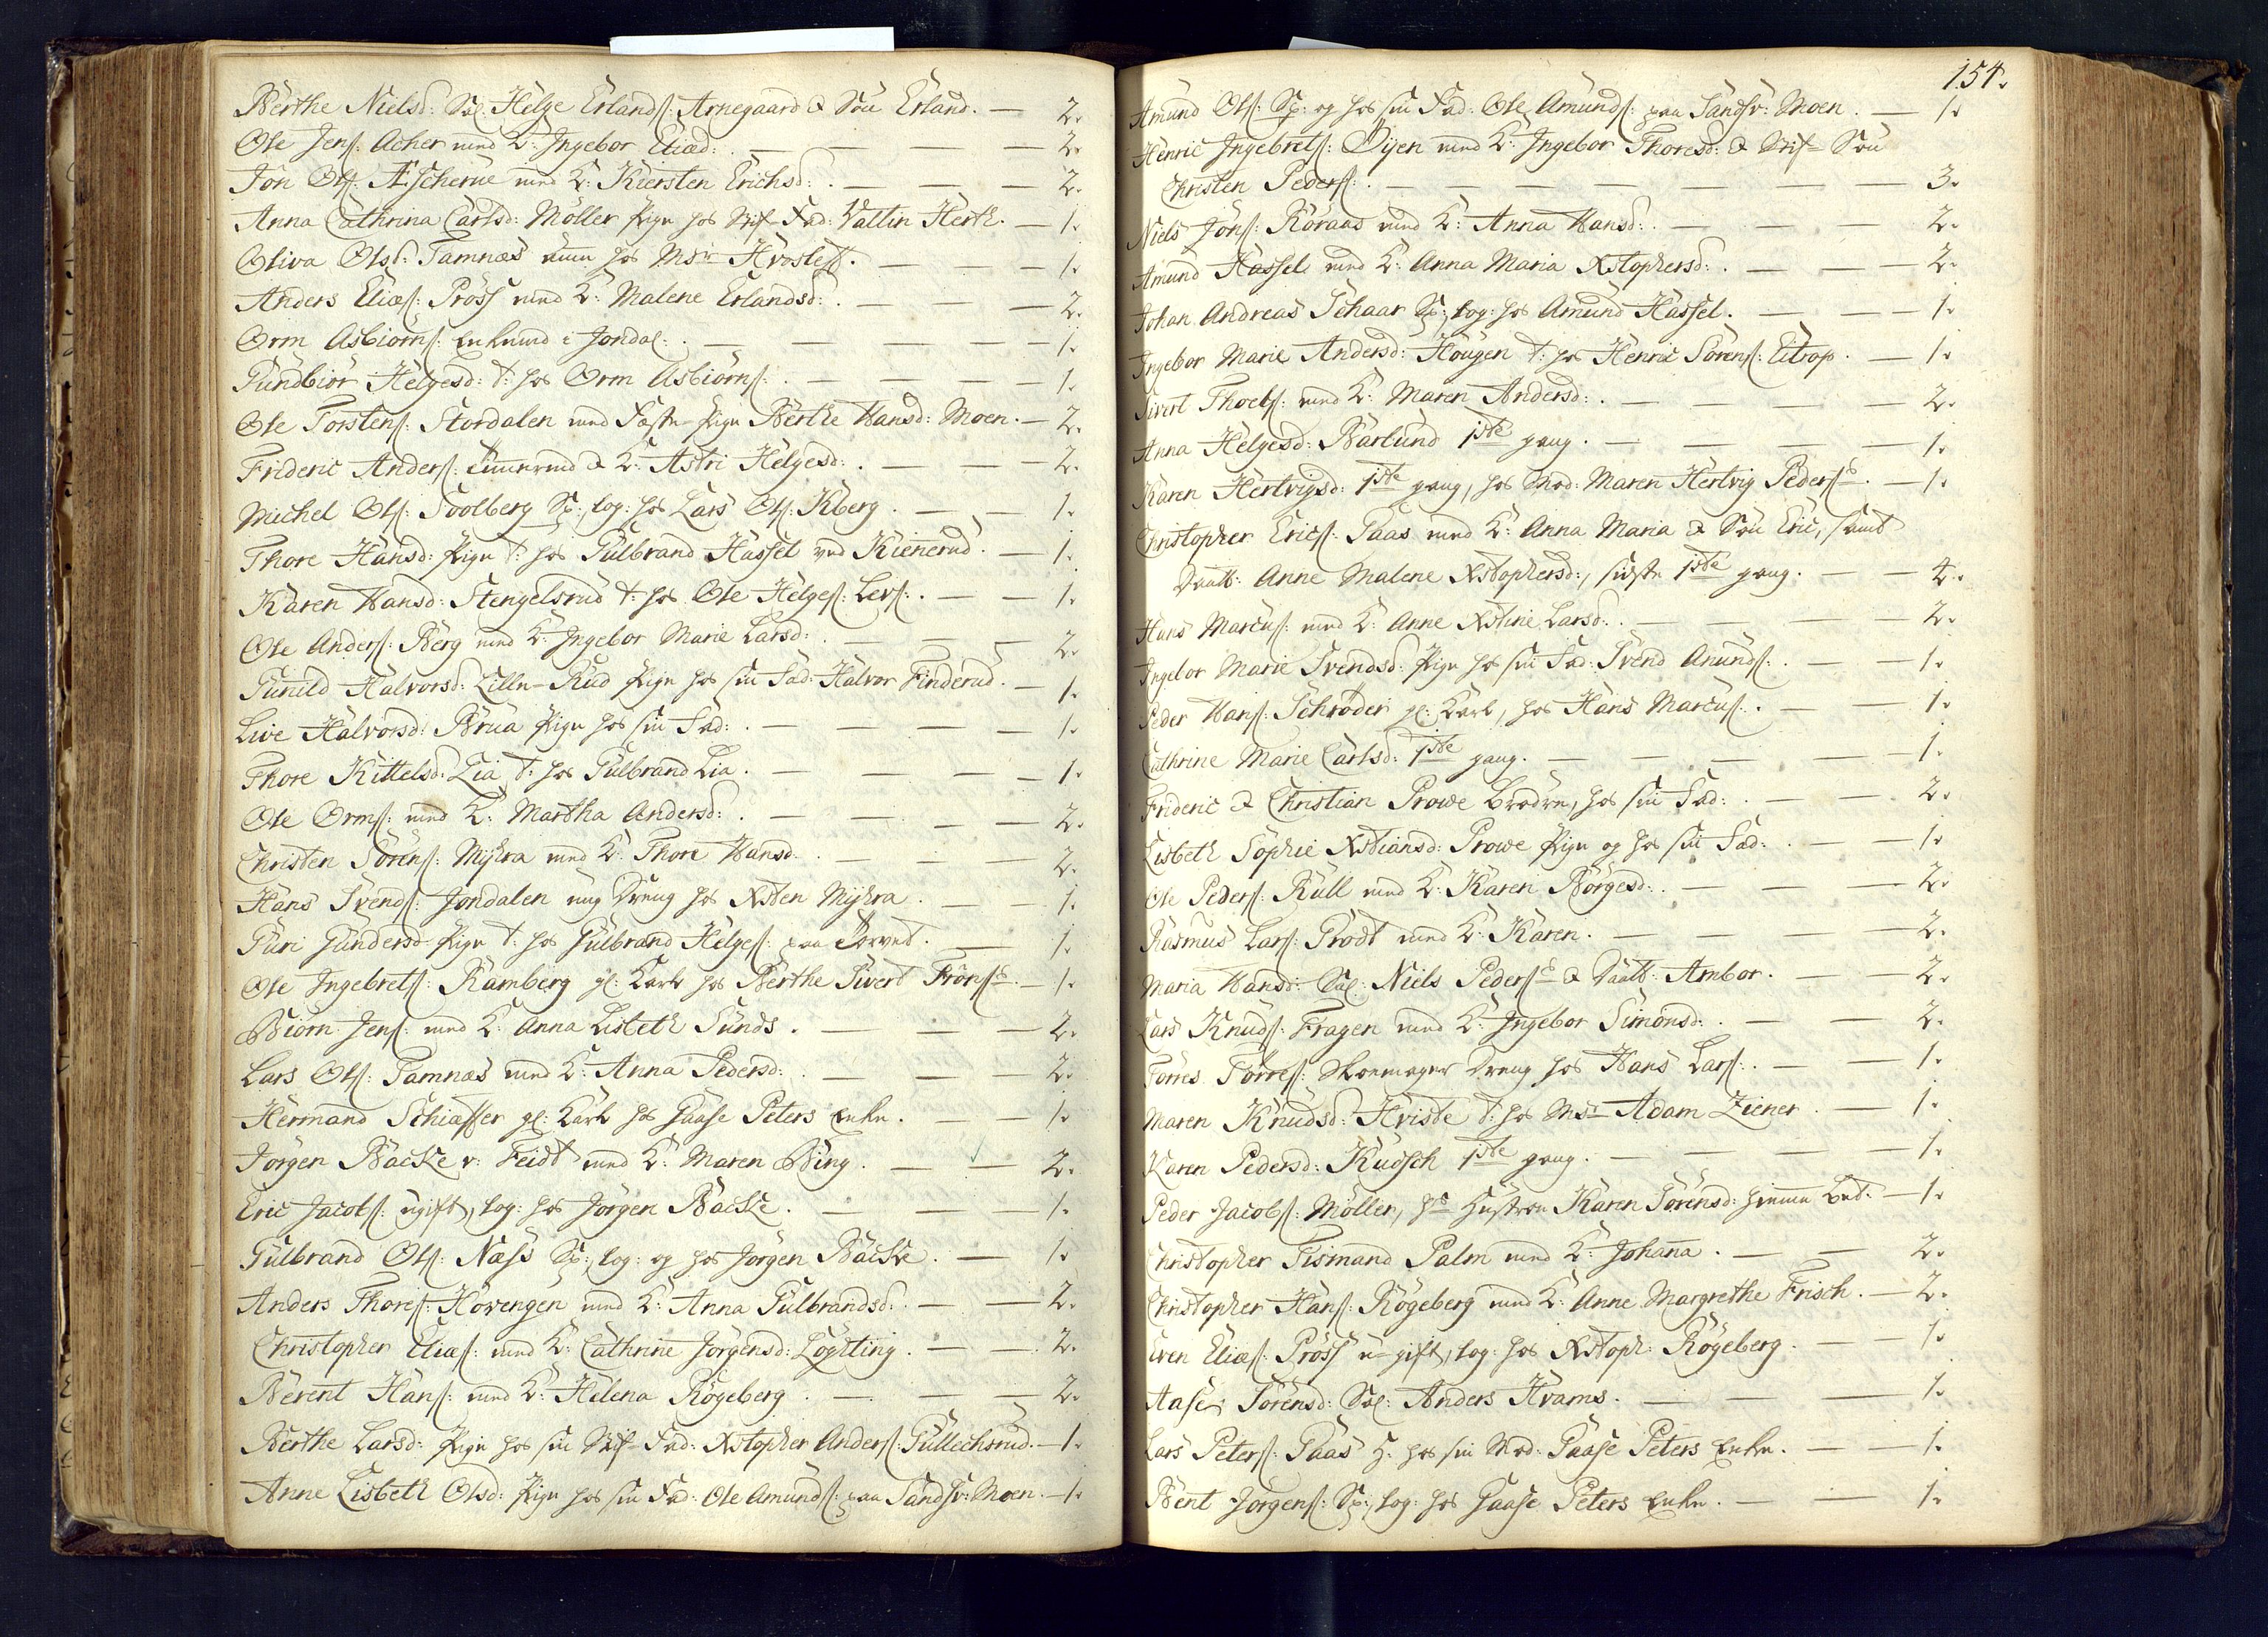 Berthe Nielsd: Sal: Helge Erlands: Arnegaard & Søn Erland. — 2.
Ole Jens: Acher med K: Ingebor Eliæd: — 2.
Jon Ols: Æscherue med K: Kiersten Erichsd: — 2.
Anna Cathrina Carlsd: Møller Pige hos Stif-Fad: Valtin Herth. — 1.
Oliva Olsd: Gamnæs hos Msr Hvosleff. — 1.
Anders Eliæs: Pröss med K: Malene Erlandsd: — 2.
Orm Asbiörns: Enkemd i Jondal: — 1.
Gundbiör Helgesd: t: hos Orm Asbiörns: — 1.
Ole Torstens: Stordalen med Fæste-Pige Berthe Hansd: Moen. — 2.
Frideric Anders: Tømmermd & K: Astri Helgesd: — 2.
Michel Ols: Soolberg Sp:, log: hos Lars Ols: Kberg. — 1.
Thore Hansd: Pige t: hos Gulbrand Hassel ved Kiennerud. — 1.
Karen Hansd: Stengelsrud t: hos Ole Helges: Lers: — 1.
Ole Anders: Berg med K: Ingebor Marie Larsd: — 2.
Gunild Halvorsd: Lille-Rud Pige hos sin Fad: Halvor Finderud. — 1.
Live Halvorsd: Brua Pige hos sin Fad: — 1.
Thore Kittelsd: Lia t: hos Gulbrand Lia. — 1.
Ole Orms: med K: Martha Andersd: — 2.
Christen Sörens: Myhra med K: Thore Hansd. — 2.
Hans Svends: Jondalen ung Dreng hos Xsten Myhra. — 1.
Guri Gundersd: Pige t: hos Gulbrand Helges: paa Torvet. — 1.
Ole Ingebrets: Ramberg gl: Karl hos Berthe Sivert Frönss. — 1.
Biörn Jens: med K: Anna Lisbeth Sunds. — 2.
Lars Ols: Gamnæs med K: Anna Pedersd: — 2.
Hermand Schiæffer gl: Karl hos Gaase Peters Enke. — 1.
Jörgen Backe v: Feidt med K: Maren Bing. — 2.
Eric Jacobs: ugift, log: hos Jörgen Backe. — 1.
Gulbrand Ols: Næss Sp:, log: og hos Jörgen Backe. — 1.
Anders Thores: Hovengen med K: Anna Gulbrandsd: — 2.
Christopher Eliæs: med K: Cathrine Jörgensd: Lögtting. — 2.
Berent Hans: med K: Helena Rögeberg. — 2.
Berthe Larsd: Pige hos sin Stif-Fad: Xstopher Anders: Gullechsrud. — 1.
Anne Lisbeth Olsd: Pige hos sin Fad: Ole Amunds: paa Sandsv: Moen. — 1.
154.
Amund Ols: Sp: og hos sin Fad: Ole Amunds: paa Sandsv: Moen. — 1.
Henric Ingebrets: Öyen med K: Ingebor Thoresd: & Stif-Søn
Christen Peders: — 3.
Niels Jöns: Roraas med K: Anna Hansd: — 2.
Amund Hassel med K: Anna Maria Xstophersd: — 2.
Johan Andreas Schaar Sp:, log: hos Amund Hassel. — 1.
Ingebor Marie Andersd: Hougen t: hos Henric Sörens: Eitrop. — 1.
Sivert Thoels: med K: Maren Andersd: — 2.
Anna Helgesd: Barlund 1ste gang. — 1.
Karen Hertvigsd: 1ste gang, hos Mod: Maren Hertvig Pederss. — 1.
Christopher Erics: Gaas med K: Anna Maria & Søn Eric, samt
Daatt: Anne Malene Xstophersd:, sidste 1ste gang. — 4.
Hans Marcus: med K: Anne Xstine Larsd: — 2.
Ingebor Marie Svendsd: Pige hos sin Fad: Svend Anunds: — 1.
Peder Hans: Schröder gl: Karl, hos Hans Marcus: — 1.
Cathrine Marie Carlsd: 1ste gang. — 1.
Frideric & Christian Prowe Brødre, hos sin Fad: — 2.
Lisbeth Sophie Xstiansd: Prowe Pige og hos sin Fad: — 1.
Ole Peders: Kull med K: Karen Börgesd: — 2.
Rasmus Lars: Prodt med K: Karen. — 2.
Maria Hansd: Sal: Niels Pederss & Daatt: Ambor. — 2.
Lars Knuds: Fragen med K: Ingebor Simonsd: — 2.
Törres Törres: Skoemager Dreng hos Hans Lars: — 1.
Maren Knudsd: Hviste t: hos Msr Adam Ziener. — 1.
Karen Pedersd: Kudsch 1ste gang. — 1.
Peder Jacobs: Møller, hs Hustroe Karen Sörensd: hiemme Ber: — 1.
Christopher Gismand Palm med K: Johanna. — 2.
Christopher Hans: Rögeberg med K: Anne Margrethe Frisch. — 2.
Even Eliæs: Pröss u-gift, log: hos Xstoph: Rögeberg. — 1.
Aase Sörensd: Sal: Anders Hvams. — 1.
Lars Peters: Gaas H: hos sin Mod: Gaase Peters Enke. — 1.
Bent Jörgens: Sp:, log: hos Gaase Peters Enke. — 1.